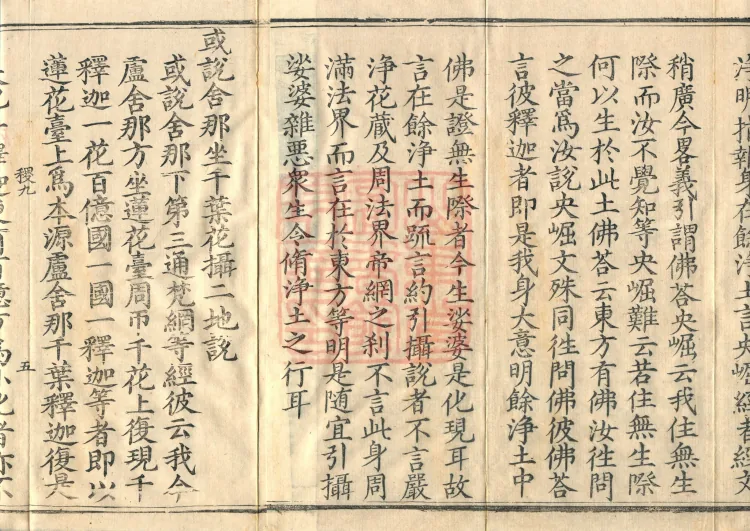 稍廣今畧義引謂佛答央崛云我住無生
際而汝不覺知等央崛難云若住無生際
何以生於此土佛答云東方有佛汝徃問
之當爲汝說央崛文殊同徃問佛彼佛答
言彼釋迦者即是我身大意明餘淨土中
佛是證無生際者今生娑婆是化現耳故
言在餘淨土而䟽言約引攝說者不言嚴
淨花蔵及周法界帝網之刹不言此身周
滿法界而言在於東方等明是随宜引攝
娑婆雜惡衆生令脩淨土之行耳
或說舍那坐千葉花攝二地說
或說舍那下第三通梵網等經彼云我今
盧舍那方坐蓮花臺周帀千花上復現千
釋迦一花百億國一國一釋迦等者即以
蓮花臺上爲本源盧舍那千葉釋迦復是
稷九
五